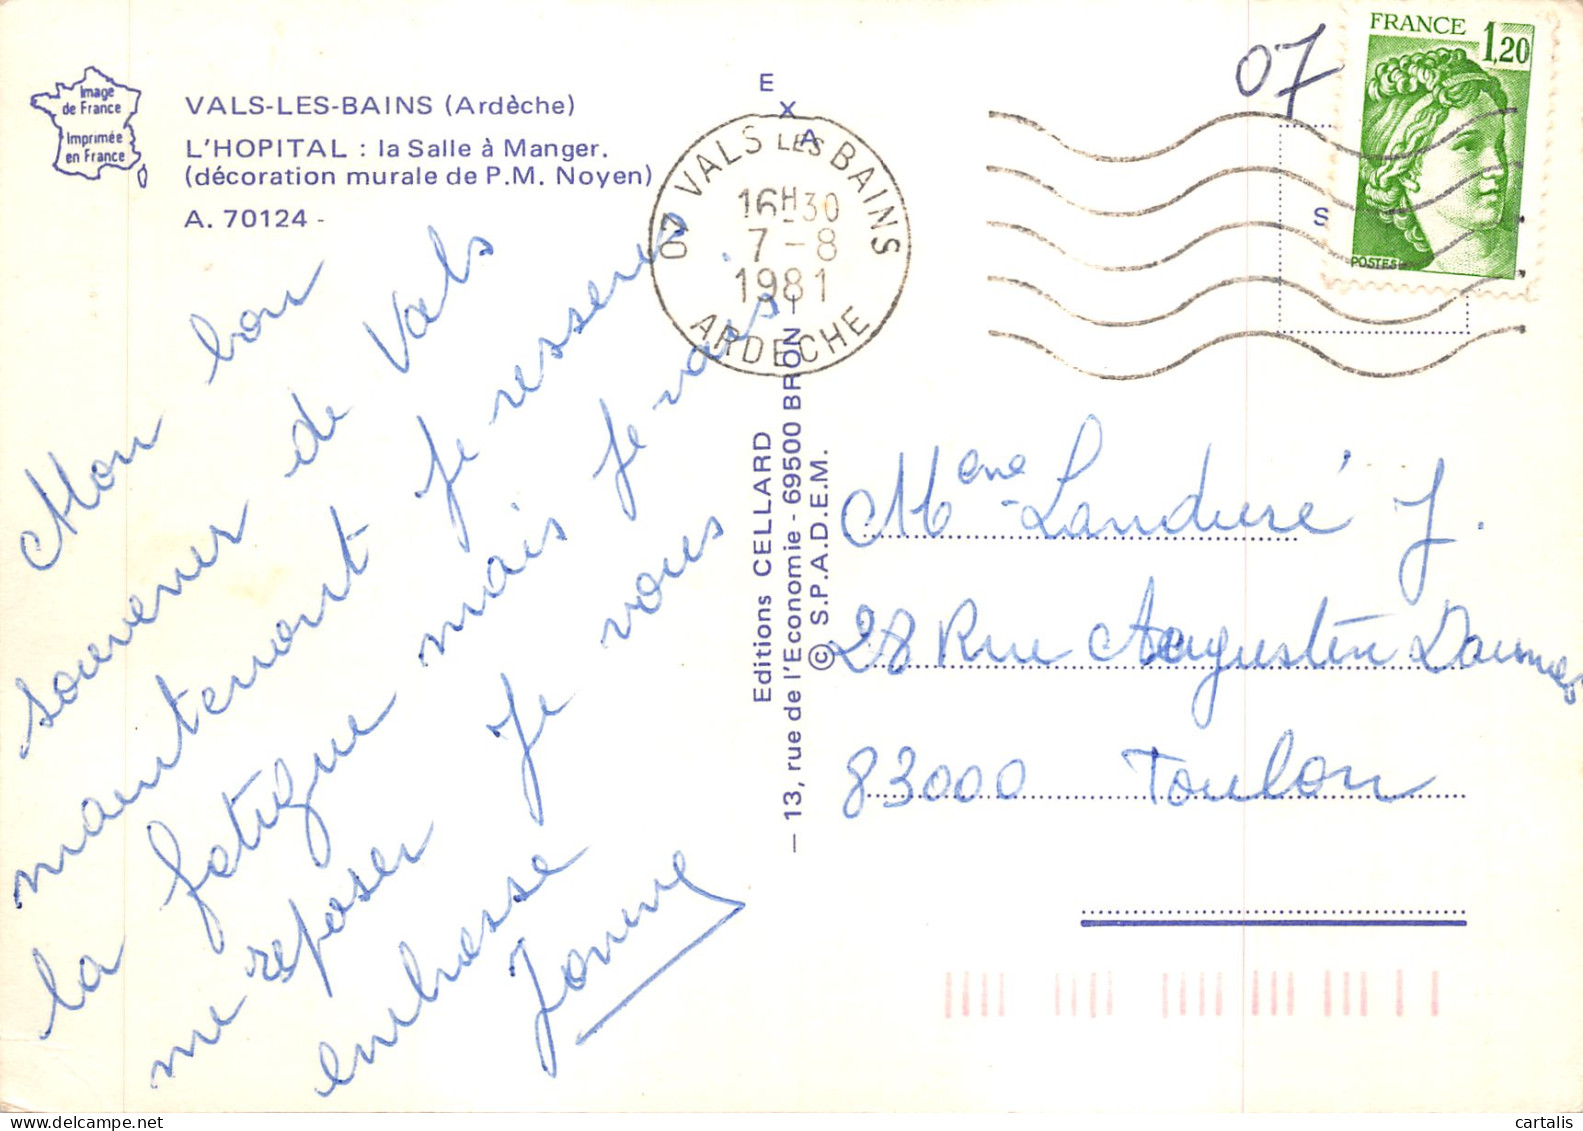 Image
de France
Imprimée
en France
VALS-LES-BAINS (Ardèche)
L'HOPITAL : la Salle à Manger.
(décoration murale de P.M. Noyen)
A. 70124 -
Mon bon
souvenir de Vals
maintenant je ressens
la fatigue mais je vais
me reposer je vous
embrasse
E
X
A
07 VALS LES BAINS
16H30
7-8
1981
ARDECHE
Editions CELLARD
— 13, rue de l'Economie - 69500 BRON —
© S.P.A.D.E.M.
07
FRANCE
1,20
POSTES
S
Mme Landuré J.
28 Rue Augustin Daumas
83000 Toulon
cartalis